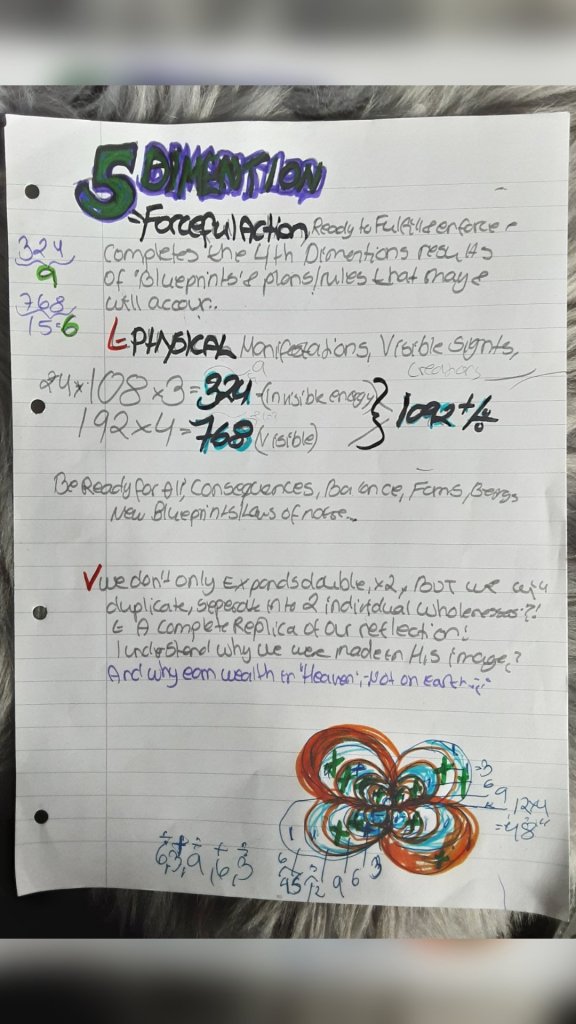 5 DIMENTION
-Forceful Action, Ready to Fulfill & enforce
324
9
completes the 4th Dimentions results
of "Blueprints & plans/rules that may &
will accour..
768
15=6
PHYSICAL Manifestations, Visible Signts,
Creators
24×108×3=324-(invisible energy)
192×4=768 (Visible)
1092 +/
Be Ready for All, Consequences, Balance, Forms, Beings
New Blueprints/Laws of
we don't only Expands double, ×2, BUT we
duplicate, seperate into 2 individual wholenesses?!
A complete Replica of our reflection!
Understand why we were made in His image,?
And why earn wealth in "Heaven", -Not on Earth
=3
6
9
12×4
=48"
6,3,9,6,3
12 9 6 3